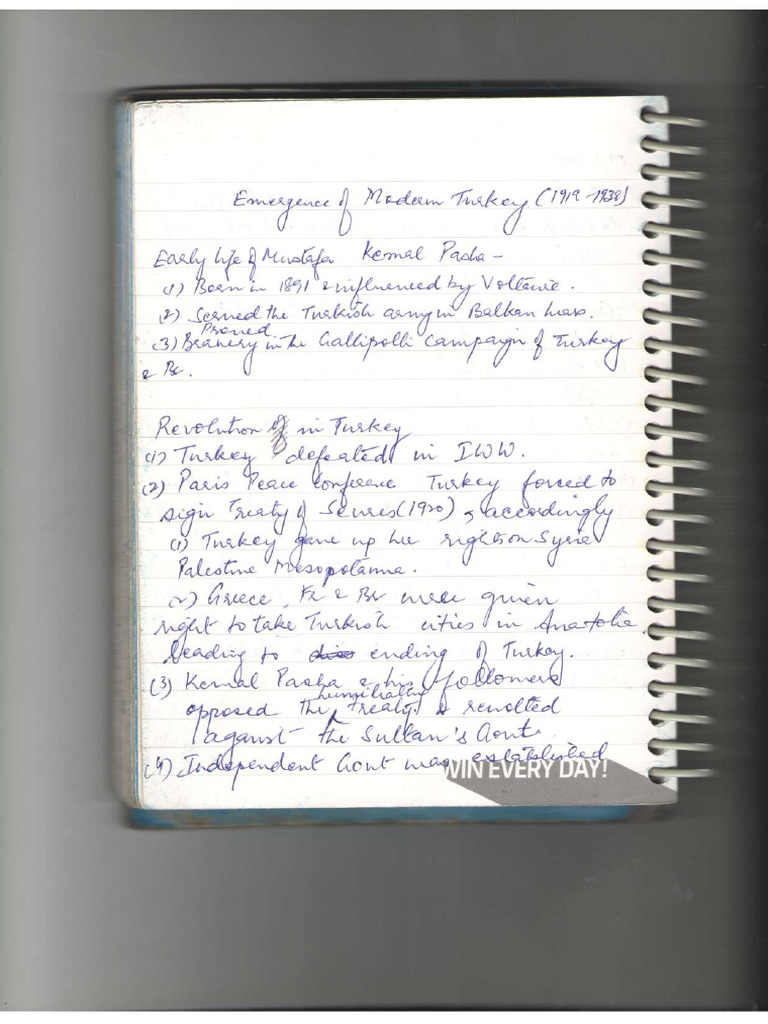 Emergence of Modern Turkey (1919-1938)
Early life of Mustafa Kemal Pasha -
(1) Born in 1891 & influenced by Voltaire.
(2) Served the Turkish army in Balkan war.
Proved
(3) Bravery in the Gallipolli campaign of Turkey
& Br.
Revolution in Turkey
(1) Turkey defeated in IWW.
(2) Paris Peace Conference Turkey forced to
sign Treaty of Sevres (1920), accordingly
(1) Turkey gave up her right on Syria
Palestine Mesopotamia.
(2) Greece, Fr & Br were given
right to take Turkish cities in Anatolia
leading to ending of Turkey.
(3) Kemal Pasha & his followers
humiliating
opposed the treaty & revolted
against the Sultan's Govt.
(4) Independent Govt was established
WIN EVERY DAY!